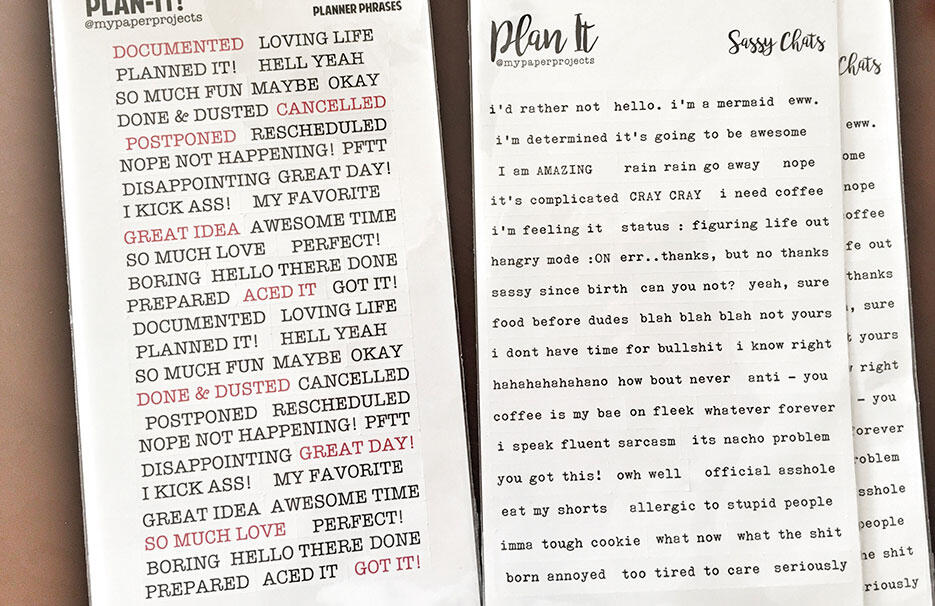 PLAN-IT!
@mypaperprojects
PLANNER PHRASES
DOCUMENTED LOVING LIFE
PLANNED IT! HELL YEAH
SO MUCH FUN MAYBE OKAY
DONE & DUSTED CANCELLED
POSTPONED RESCHEDULED
NOPE NOT HAPPENING! PFTT
DISAPPOINTING GREAT DAY!
I KICK ASS! MY FAVORITE
GREAT IDEA AWESOME TIME
SO MUCH LOVE PERFECT!
BORING HELLO THERE DONE
PREPARED ACED IT GOT IT!
DOCUMENTED LOVING LIFE
PLANNED IT! HELL YEAH
SO MUCH FUN MAYBE OKAY
DONE & DUSTED CANCELLED
POSTPONED RESCHEDULED
NOPE NOT HAPPENING! PFTT
DISAPPOINTING GREAT DAY!
I KICK ASS! MY FAVORITE
GREAT IDEA AWESOME TIME
SO MUCH LOVE PERFECT!
BORING HELLO THERE DONE
PREPARED ACED IT GOT IT!
Plan It
@mypaperprojects
Sassy Chats
i'd rather not hello. i'm a mermaid eww.
i'm determined it's going to be awesome
I am AMAZING rain rain go away nope
it's complicated CRAY CRAY i need coffee
i'm feeling it status : figuring life out
hangry mode :ON err..thanks, but no thanks
sassy since birth can you not? yeah, sure
food before dudes blah blah blah not yours
i dont have time for bullshit i know right
hahahahahahano how bout never anti - you
coffee is my bae on fleek whatever forever
i speak fluent sarcasm its nacho problem
you got this! owh well official asshole
eat my shorts allergic to stupid people
imma tough cookie what now what the shit
born annoyed too tired to care seriously
Chats
eww.
ome
nope
offee
fe out
thanks
, sure
t yours
right
- you
orever
roblem
sshole
people
he shit
riously